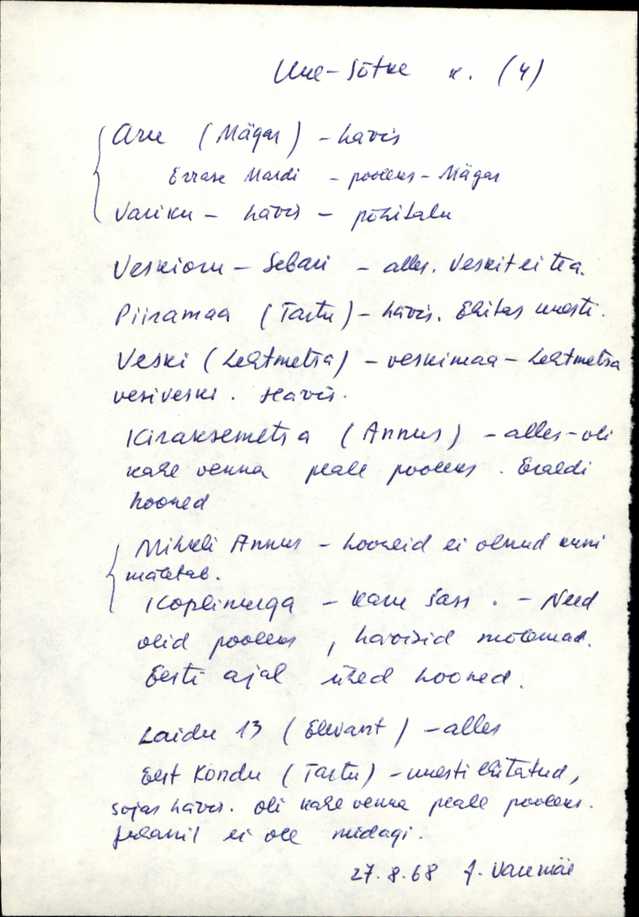 Uue-Sõtke k. (4)
Aru (Mägar) - hävis
Errase Mardi - pooleks - Mägar
Variku - hävis - põhitalu
Veskioru - Sebari - alles. Veskit ei tea.
Piiramaa (Tartu) - hävis. Ehitas uuesti.
Veski (Lehtmetsa) - veskimaa - Lehtmetsa
vesiveski. Hävis.
Kiraksemetsa (Annus) - alles - oli
kahe venna peale pooleks. Eraldi
hooned
Mihkli Annus - hooneid ei olnud kuni
mäletab.
Koplinurga - Karu Sass. - Need
olid pooleks, hävisid mõlemad.
Eesti ajal ühed hooned.
Laidu 13 (Elevant) - alles
Eest Kondu (Tartu) - uuesti ehitatud,
sõjas hävis. Oli kahe venna peale pooleks.
ei ole midagi.
27.8.68 J. Varemäe